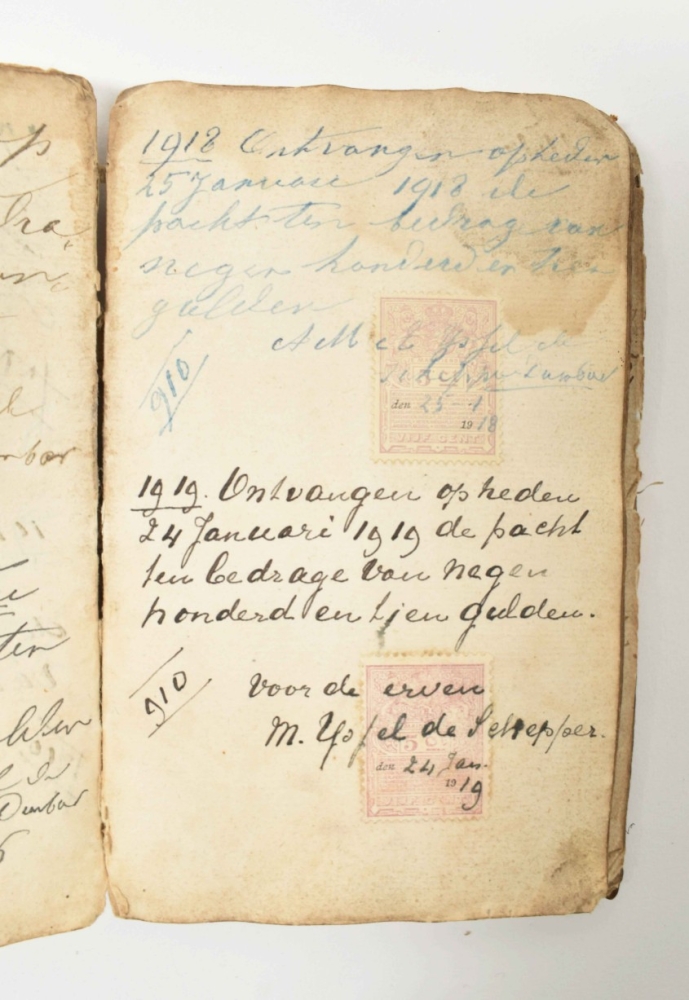 1918 Ontvangen op heden
25 Januari 1918 de
pacht ten bedrage van
negen honderd en tien
gulden
A M C L Ypsel de
Schepper Dumbar
910
den 25 - 1
1918
VIJF CENT
1919. Ontvangen op heden
24 Januari 1919 de pacht
ten bedrage van negen
honderd en tjen gulden.
910
Voor de erven
M. Ypsel de Schepper.
den 24 Jan.
1919